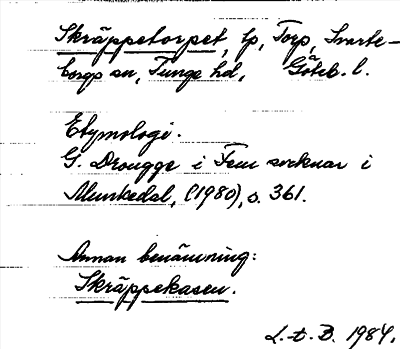 Skräppetorpet, lp, Torp, Svarte-
borgs sn, Tunge hd, Göteb. l.
Etymologi.
G. Drougge i Fem socknar i
Munkedal, (1980), s. 361.
Annan benämning:
Skräppekasen.
L.t.B. 1984.